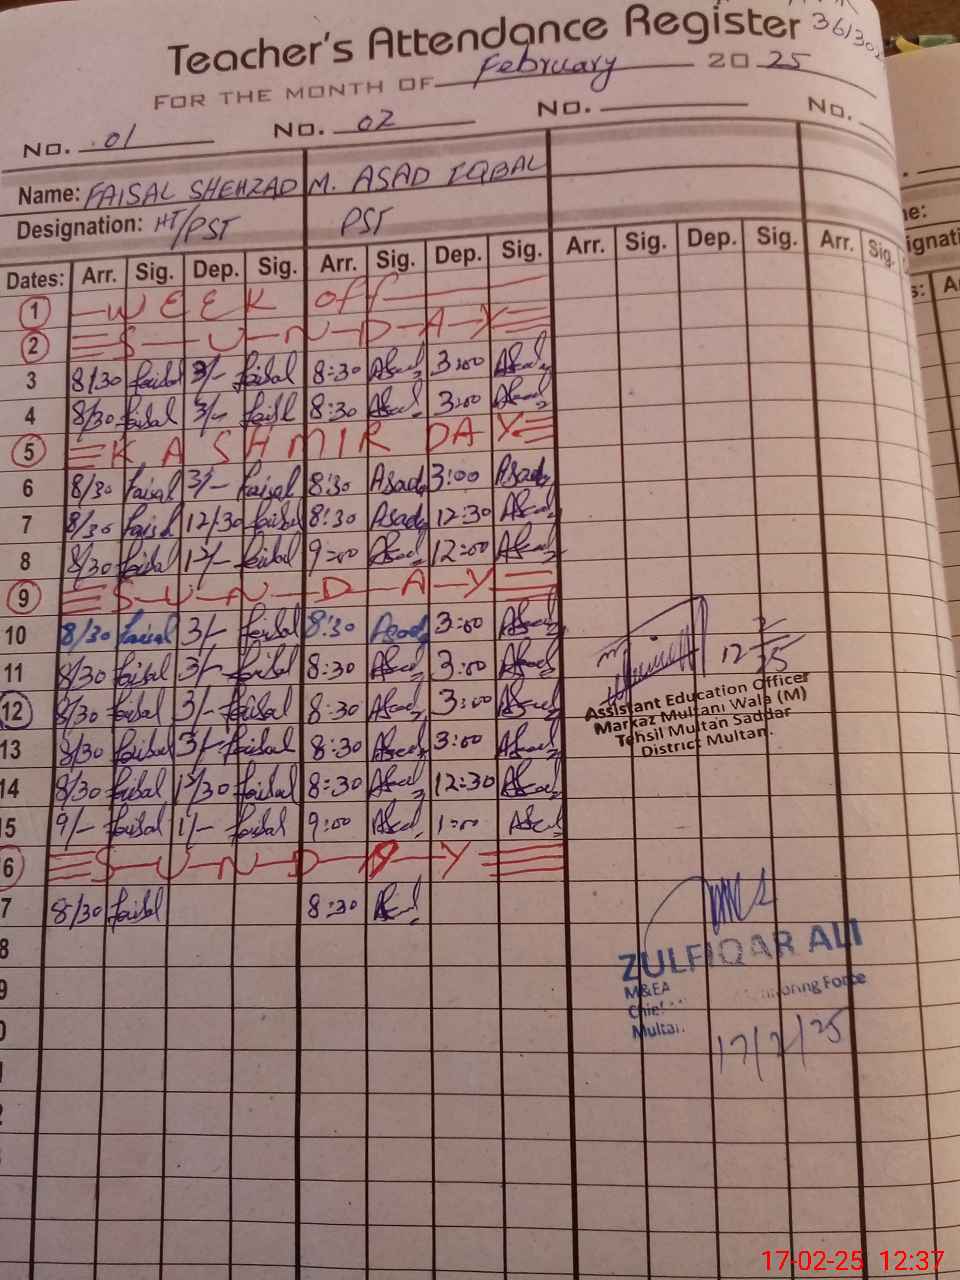 Teacher's Attendance Register
FOR THE MONTH OF February 2025
No. 01 No. 02 No. No.
Name: FAISAL SHEHZAD M. ASAD IQBAL
Designation: HT/PST PST
Dates: Arr. Sig. Dep. Sig. Arr. Sig. Dep. Sig. Arr. Sig. Dep. Sig. Arr. Sig.
1 WEEK Off
2 SUNDAY
3 8/30 faisal 3/- faisal 8:30 Asad 3:00 Asad
4 8/30 faisal 3/- faisl 8:30 Asad 3:00 Asad
5 KASHMIR DAY
6 8/30 faisal 3/- faisal 8:30 Asad 3:00 Asad
7 8/30 faisal 12/30 faisal 8:30 Asad 12:30 Asad
8 8/30 faisal 12/- faisal 9:00 Asad 12:00 Asad
9 SUNDAY
10 8/30 faisal 3/- faisal 8:30 Asad 3:00 Asad
11 8/30 faisal 3/- faisal 8:30 Asad 3:00 Asad
12 8/30 faisal 3/- faisal 8:30 Asad 3:00 Asad
13 8/30 faisal 3/- faisal 8:30 Asad 3:00 Asad
14 8/30 faisal 12/30 faisal 8:30 Asad 12:30 Asad
15 9/- faisal 1/- faisal 9:00 Asad 1:00 Asad
6 SUNDAY
7 8/30 faisal 8:30 Asad
8
9
0
1
2
12 2/25
Assistant Education Officer
Markaz Multani Wala (M)
Tehsil Multan Saddar
District Multan.
ZULFIQAR ALI
M&EA
Chief Monitoring Force
Multan.
17/2/25
17-02-25 12:37